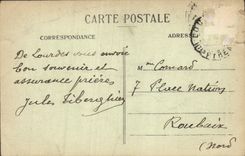 CARTE POSTALE
CORRESPONDANCE
ADRESSE
De Lourdes vous envoie
bon souvenir et
assurance prières
Jules
Mme
7 Place Nations
Roubaix
(Nord)